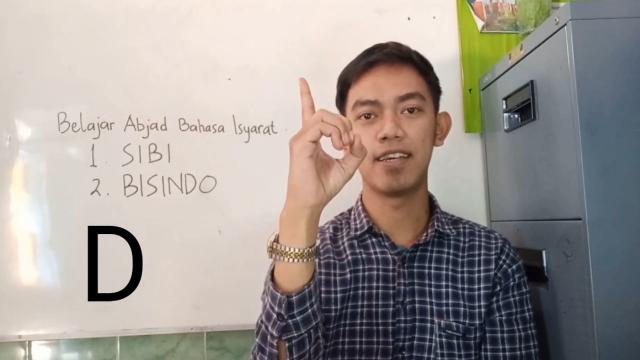 Belajar Abjad Bahasa Isyarat.
1. SIBI
2. BISINDO
D